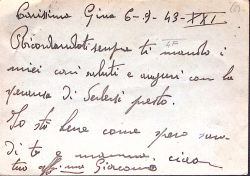 Carissima Gina 6-9-43-XXI
Ricordandoti sempre ti mando i
miei cari saluti e auguri con la
speranza di vederci presto.
Io sto bene come spero
di te e mamma. ciao
tuo aff.mo Giacomo